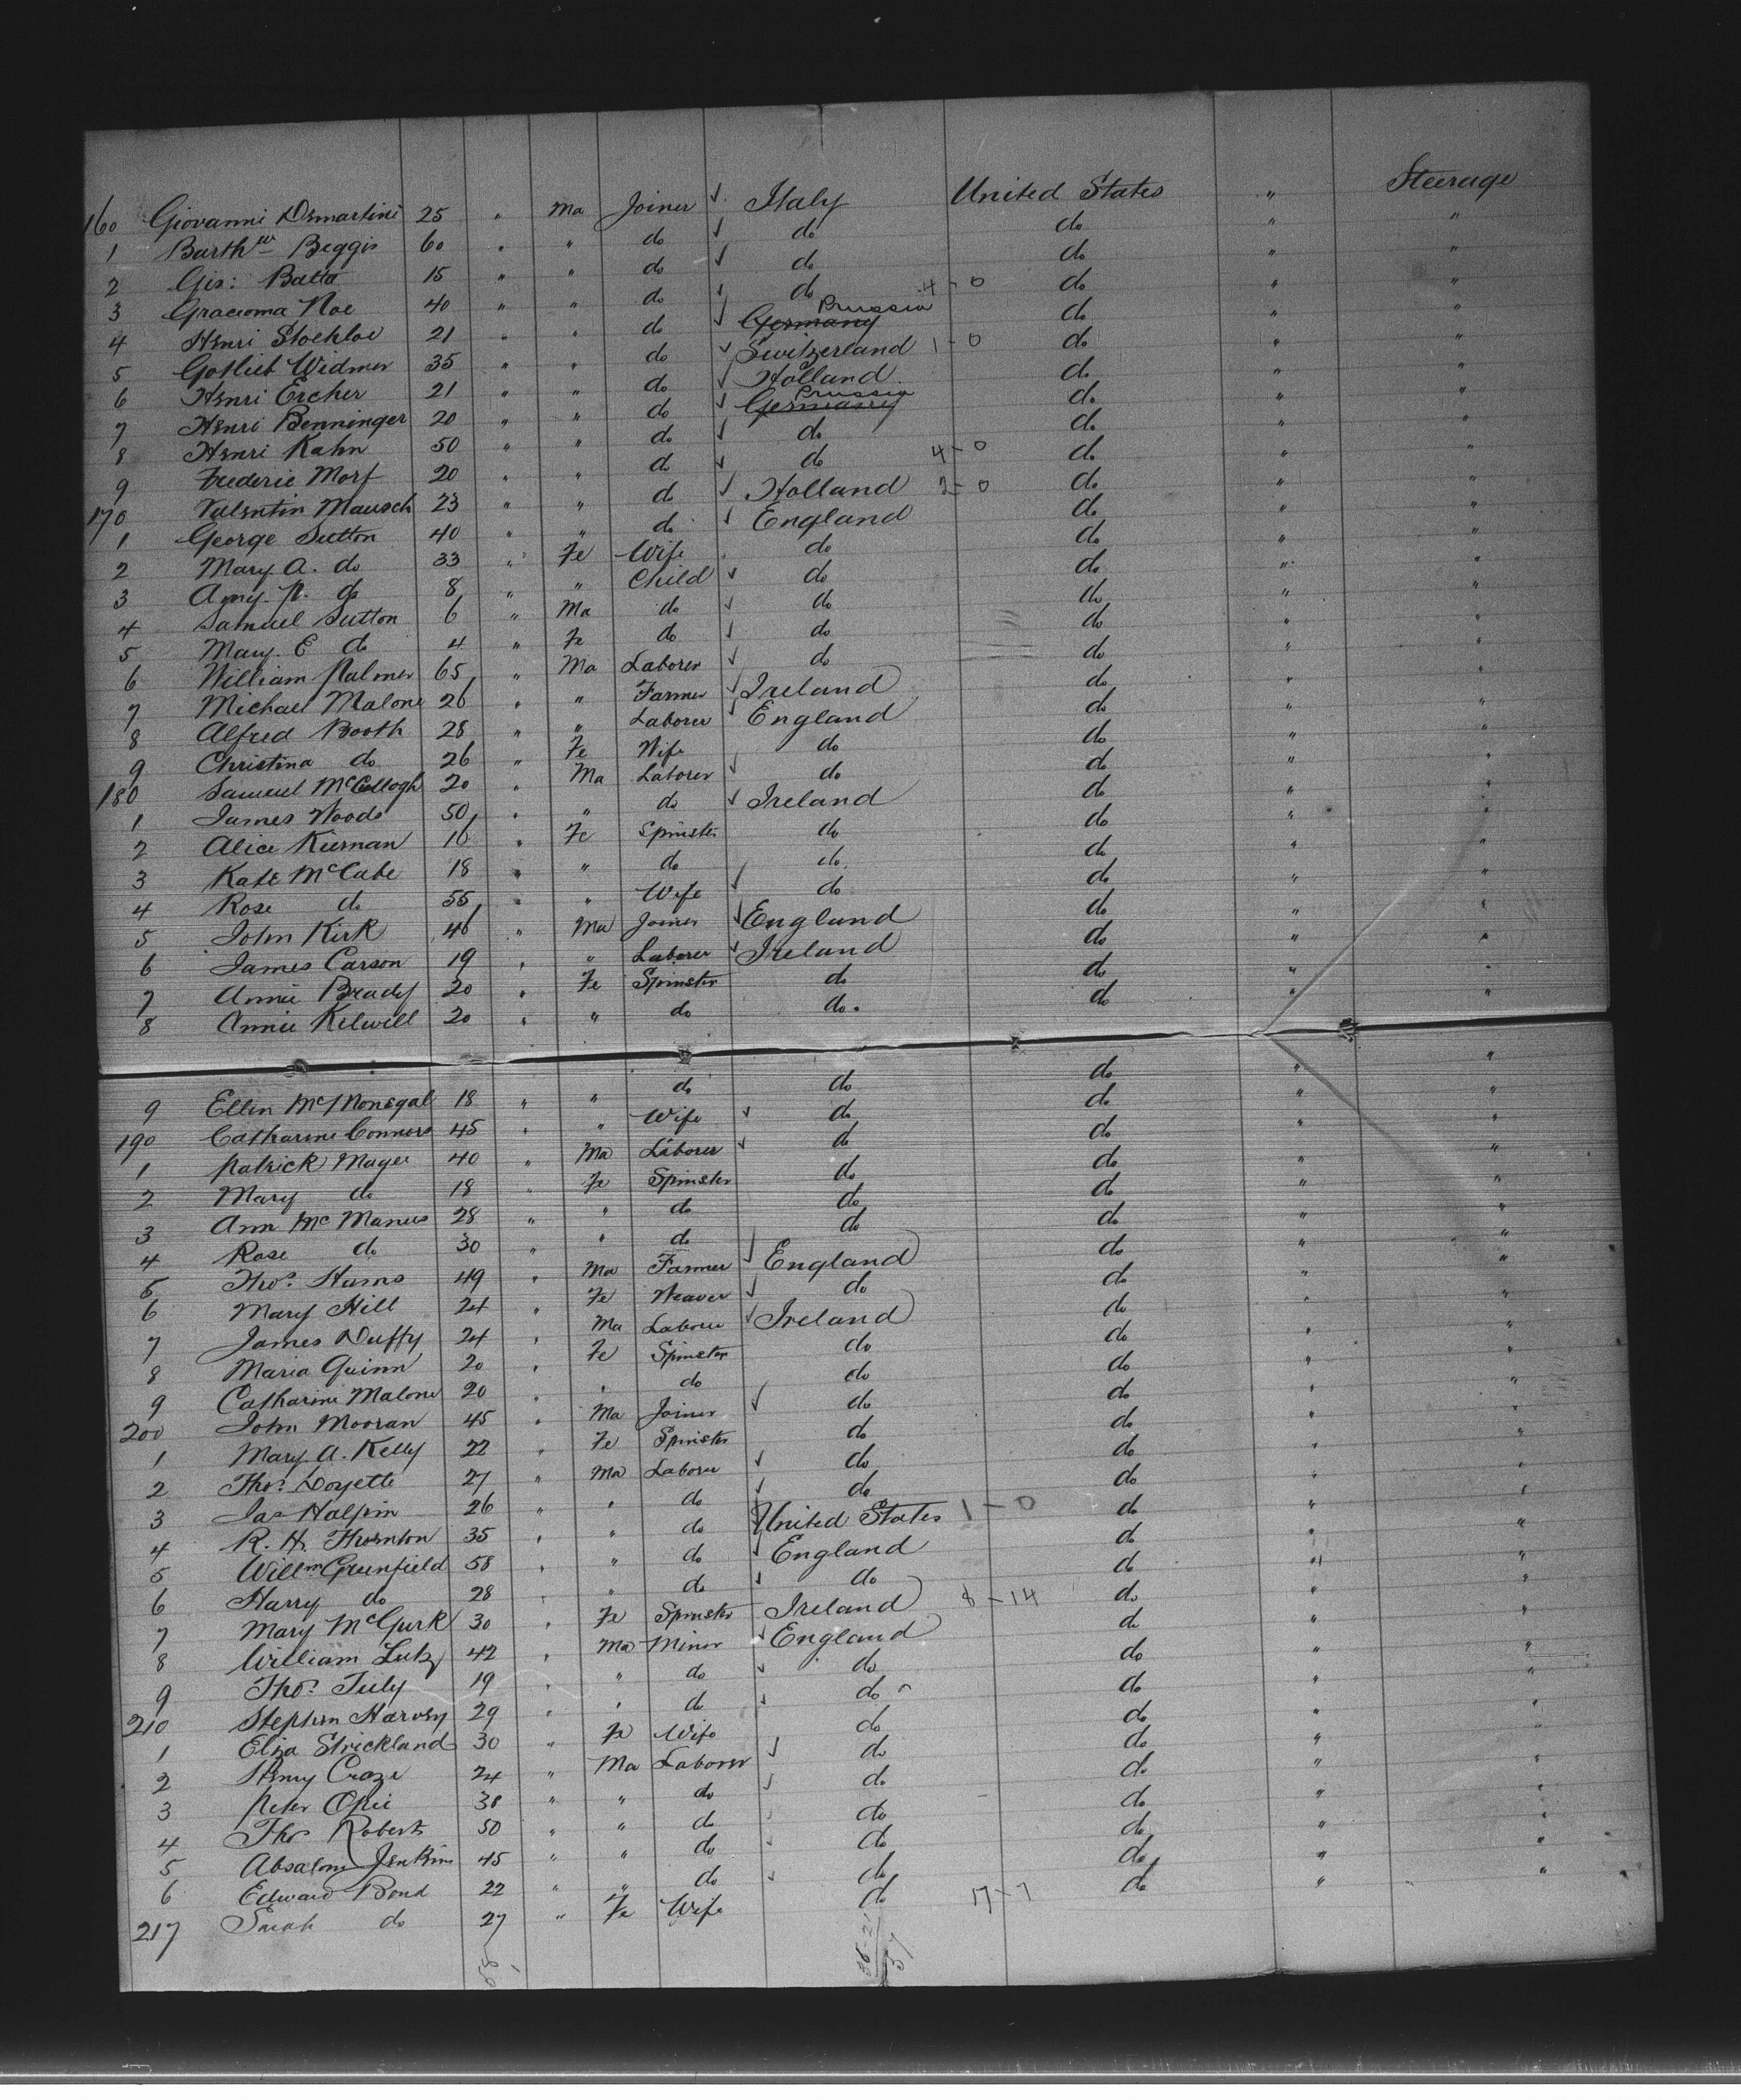 160 Giovanni Demartini 25 " Ma Joiner ✓ Italy United States " Steerage
1 Barthw Beggis 60 " " do ✓ do do " "
2 Gio: Batta 15 " " do ✓ do do " "
3 Graccoma Noe 40 " " do ✓ do 4-0 do " "
4 Henri Stoehloe 21 " " do ✓ Germany Prussia do " "
5 Gotlieb Widmer 35 " " do ✓ Switzerland 1-0 do " "
6 Henri Ercher 21 " " do ✓ Holland do " "
7 Henri Benninger 20 " " do ✓ Germany Prussia do " "
8 Henri Kahn 50 " " do ✓ do do " "
9 Frederic Morf 20 " " do ✓ do 4-0 do " "
170 Valentin Mausch 23 " " do ✓ Holland 2-0 do " "
1 George Sutton 40 " " do ✓ England do " "
2 Mary A. do 33 " Fe Wife do do " "
3 Amy P. do 8 " " Child ✓ do do " "
4 Samuel Sutton 6 " Ma do ✓ do do " "
5 Mary E do 4 " Fe do ✓ do do " "
6 William Palmer 65 " Ma Laborer ✓ do do " "
7 Michael Malone 26 " " Farmer ✓ Ireland do " "
8 Alfred Booth 28 " " Laborer ✓ England do " "
9 Christina do 26 " Fe Wife do do " "
180 Samuel McCullogh 20 " Ma Laborer ✓ do do " "
1 James Woods 50 " " do ✓ Ireland do " "
2 Alice Kiernan 16 " Fe Spinster do do " "
3 Kate McCabe 18 " " do do do " "
4 Rose do 55 " " Wife ✓ do do " "
5 John Kirk 46 " Ma Joiner ✓ England do " "
6 James Carson 19 " " Laborer ✓ Ireland do " "
7 Annie Brady 20 " Fe Spinster do do " "
8 Annie Kelwell 20 " " do do do " "
9 Ellen McMonegal 18 " " do do do " "
190 Catharine Connors 45 " " Wife ✓ do do " "
1 Patrick Magee 40 " Ma Laborer ✓ do do " "
2 Mary do 18 " Fe Spinster do do " "
3 Ann McManus 28 " " do do do " "
4 Rose do 30 " " do do do " "
5 Thos. Hurns 49 " Ma Farmer ✓ England do " "
6 Mary Hill 24 " Fe Weaver ✓ do do " "
7 James Duffy 24 " Ma Laborer ✓ Ireland do " "
8 Maria Quinn 20 " Fe Spinster do do " "
9 Catharine Malone 20 " " do do do " "
200 John Mooran 45 " Ma Joiner ✓ do do " "
1 Mary A. Kelly 22 " Fe Spinster do do " "
2 Thos. Doyette 27 " Ma Laborer ✓ do do " "
3 Jas Halpin 26 " " do ✓ do do " "
4 R. H. Thornton 35 " " do ✓ United States 1-0 do " "
5 Willm Greenfield 58 " " do ✓ England do " "
6 Harry do 28 " " do ✓ do do " "
7 Mary McGurk 30 " Fe Spinster Ireland 8-14 do " "
8 William Lutz 42 " Ma Miner ✓ England do " "
9 Thos. Tuly 19 " " do ✓ do do " "
210 Stephen Harvey 29 " " do ✓ do do " "
1 Eliza Strickland 30 " Fe Wife do do " "
2 Henry Craze 24 " Ma Laborer ✓ do do " "
3 Peter Opie 38 " " do ✓ do do " "
4 Thos Roberts 50 " " do ✓ do do " "
5 Absalom Jenkins 45 " " do ✓ do do " "
6 Edward Bond 22 " " do ✓ do do " "
217 Sarah do 27 " Fe Wife do 17-7 do " "
36-21
57